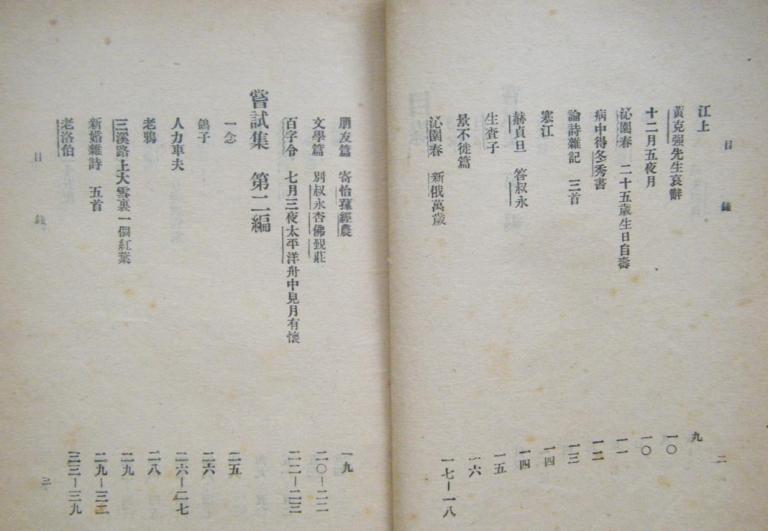 目錄 二
江上 九
黃克強先生哀辭 一〇
十二月五夜月 一〇
沁園春 二十五歲生日自壽 一一
病中得冬秀書 一二
論詩雜記 三首 一三
寒江 一四
赫貞旦 答叔永 一四
生查子 一五
景不徙篇 一六
沁園春 新俄萬歲 一七—一八
朋友篇 寄怡蓀經農 一九
文學篇 別叔永杏佛覲莊 二〇—二一
百字令 七月三夜太平洋舟中見月有懷 二二—二三
嘗試集 第二編
一念 二五
鴿子 二六
人力車夫 二六—二七
老鴉 二八
三溪路上大雪裏一個紅葉 二九
新婚雜詩 五首 二九—三二
老洛伯 三三—三九
目錄 三